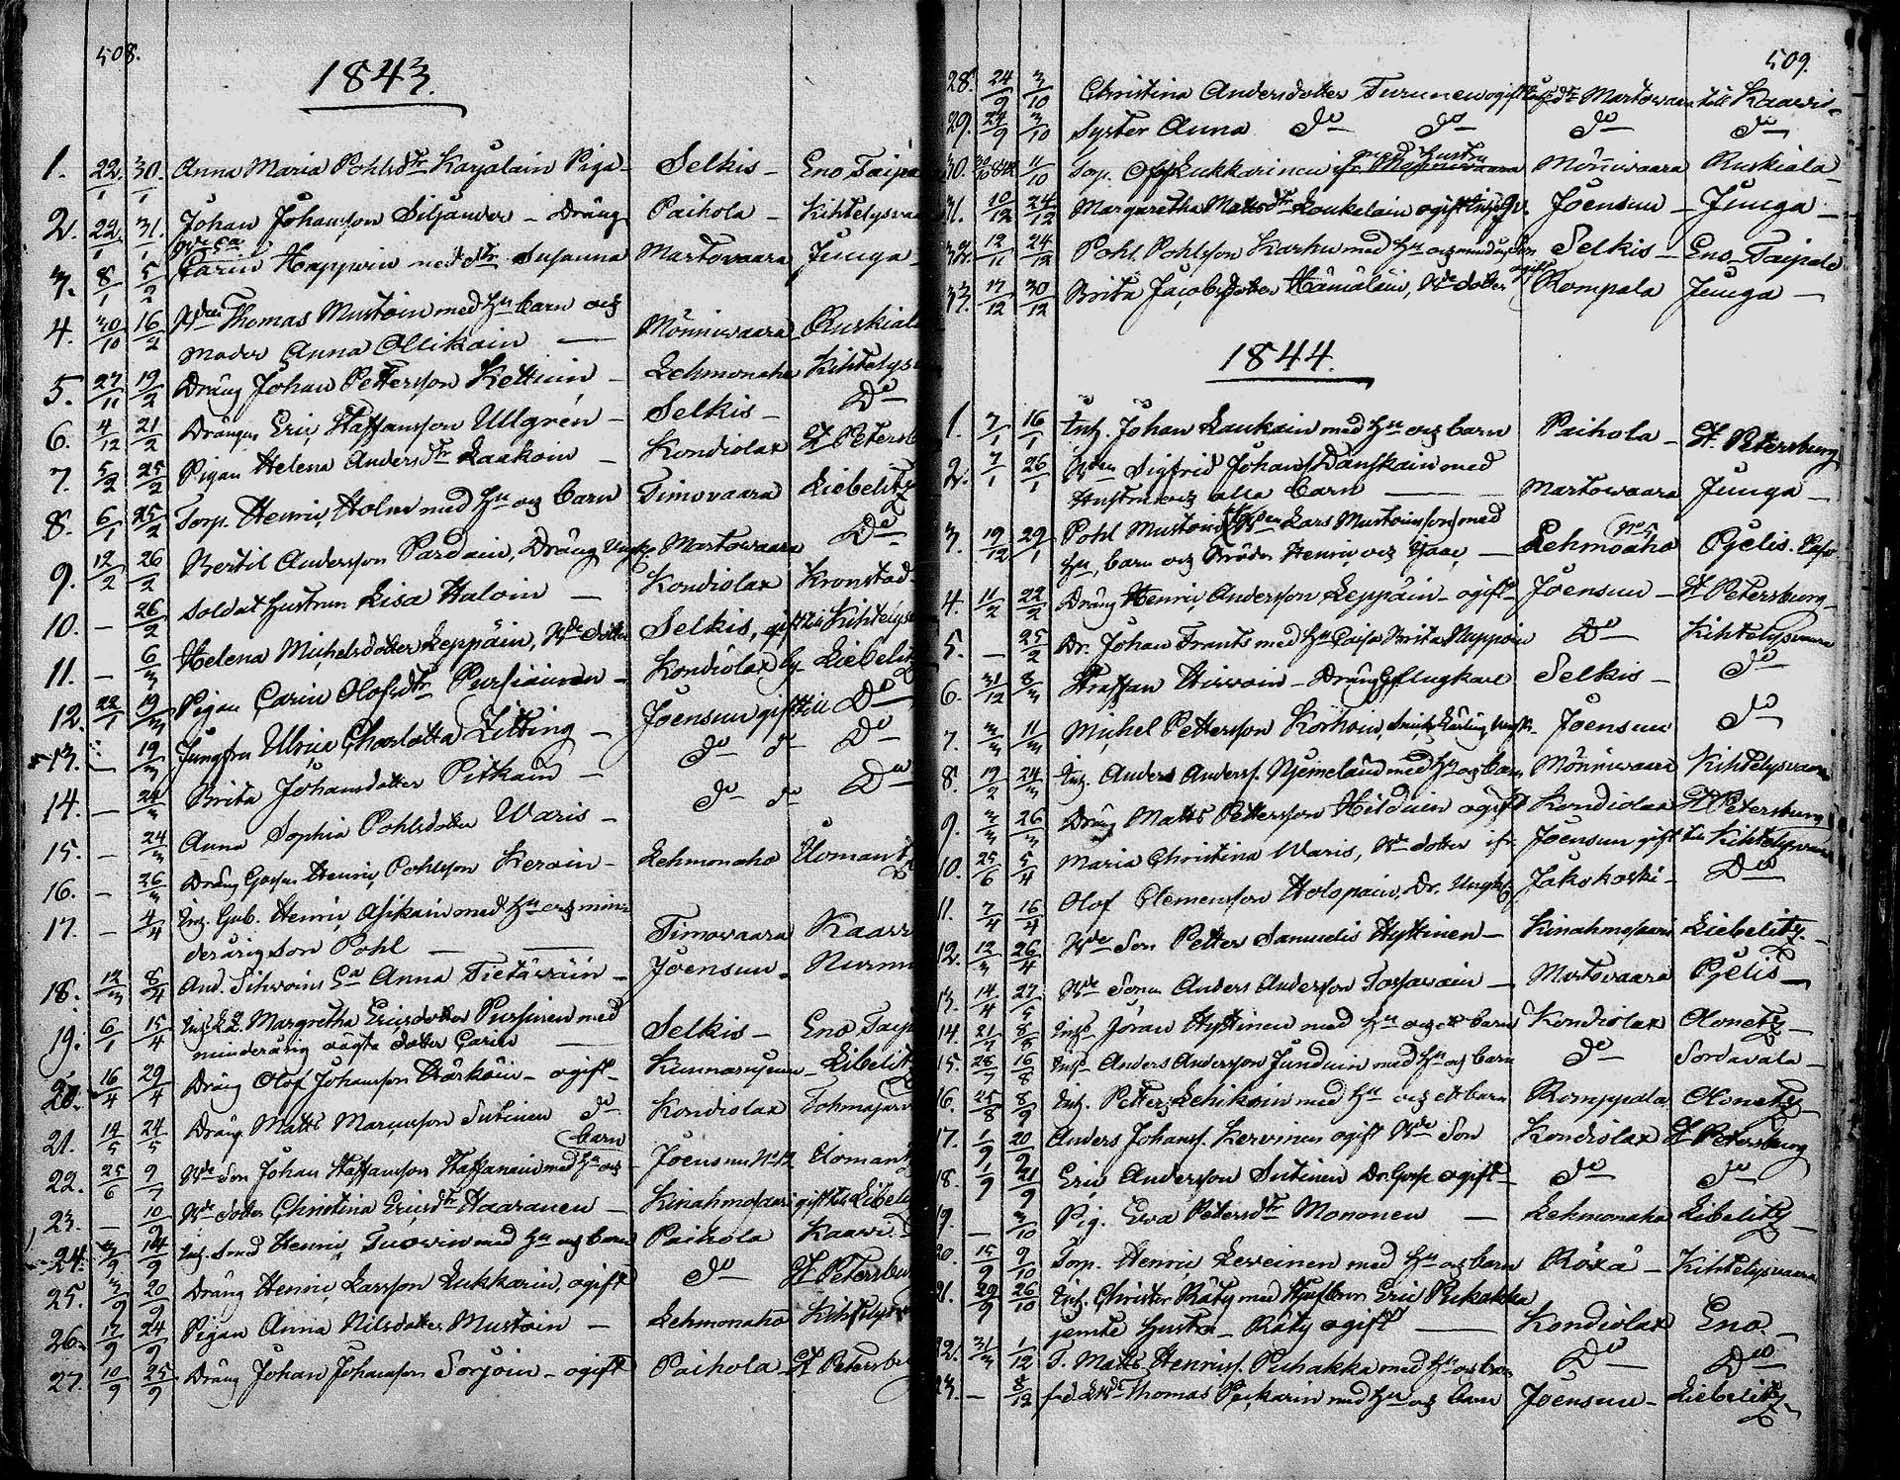 508.
1843.
1. 22/1 30/1 Anna Maria Pohlsdtr Karjalain Piga - Selkis - Eno Taipa
2. 22/1 31/1 Johan Johansson Siljander - Dräng Paihola - Kihtelysvaa
3. 8/1 5/2 Carin Happoin med dtr Susanna Martovaara Junga -
4. 30/10 16/2 Thomas Mustoin med Hu barn och
moder Anna Ollikain — Mönnivaara Ruskiala
5. 27/11 19/2 Dräng Johan Pettersson Kettuin - Lehmonaho Kihtelys
6. 4/12 21/2 Drängen Eric Staffansson Ullgrén - Selkis - Do
7. 5/2 25/2 Pigan Helena Andersdtr Laakoin - Kondiolax St Petersb
8. 6/1 25/2 Torp. Henric Holm med Hu och barn Timovaara Liebelitz
9. 12/2 26/2 Bertil Andersson Pardain, Dräng Ungk. Martowaara Do
10. - 26/2 Soldat Hustrun Lisa Haloin - Kondiolax Kronstad
11. - 6/3 Helena Michelsdotter Leppäin, Bde dotter Selkis, gift till Kihtelys
12. 22/1 19/3 Pigan Carin Olofsdtr Pursiainen - Kondiolax by Liebelitz
13. - 19/3 Jungfru Ulrica Charlotta Zitting - Joensuu gift till Do
14. - 24/3 Brita Johansdotter Pitkäin - do do Do
15. - 24/3 Anna Sophia Pohlsdotter Waris - do do Do
16. - 26/3 Dräng Gossen Henric Pohlsson Keroin - Lehmonaho Ilomants
17. - 4/4 Inh. Gub. Henric Asikain med Hu och min
derårig Son Pohl — Timovaara Kaavi
18. 14/3 8/4 And. Sihvoins Ea Anna Tietäväin - Joensuu - Nurm
19. 6/1 15/4 Margretha Ericsdotter Pursinen med
minderårig oägta dotter Carin — Selkis - Eno Taip
20. 16/4 29/4 Dräng Olof Johansson Härköin - ogift - Kunnasniemi - Libelitz
21. 14/5 24/5 Dräng Matts Marcusson Sutinen do Kondiolax Tohmajärvi
22. 25/6 9/7 Bde Son Johan Staffansson Staffanain med Hu och barn Joensuu No 12 Ilomants
23. - 10/9 Bde dotter Christina Ericsdtr Haaranen - Kinahmosaari gift till Libelitz
24. 3/9 14/9 Inh. Son Henric Tuovin med Hu och barn Paihola Kaavi
25. 3/9 20/9 Dräng Henric Larsson Lukkarin, ogift do St Petersbu
26. 17/9 24/9 Pigan Anna Nilsdotter Mustoin - Lehmonaho Kihtelysv
27. 10/9 25/9 Dräng Johan Johansson Sorjoin - ogift Paihola - St Petersbu
509.
28. 24/9 3/10 Christina Andersdotter Turunen ogift Martovaara till Kaavi -
29. 24/9 3/10 Syster Anna do do do do
30. 11/10 Torp. Olof Lukkarinen med Hustru Mönnivaara Ruskiala -
31. 10/12 24/12 Margaretha Mattsdtr Loukelain ogift Joensuu - Junga -
32. 12/11 24/12 Pohl Pohlsson Karhu med Hu och Selkis - Eno Taipale
33. 17/12 30/12 Brita Jacobsdotter Hämäläin, Bde dotter ogift Rompala Junga -
1844.
1. 7/1 16/1 Inh. Johan Laukain med Hu och barn Paihola - St. Petersburg
2. 7/1 26/1 Bden Sigfrid Johanss. Danskain med
Hustru och alla barn — Martowaara Junga -
3. 19/12 29/1 Pohl Mustoin (Bden Lars Mustoins son) med
Hu, barn och Bröder Henric och Isaac - Lehmoaho No 5 Pjelis.
4. 11/2 22/2 Dräng Henric Andersson Leppäin - ogift - Joensuu - St Petersburg -
5. - 25/2 Dr. Johan Frants med Hu Caisa Brita Nuppoin Do Kihtelysvaara
6. 31/12 8/3 Staffan Hirvoin - Dräng Ungkarl Selkis - do
7. 3/3 11/3 Michel Pettersson Korhoin, Joensuu do
8. 19/2 24/3 Inh. Anders Anderss. Njemeläin med Hu och barn Mönnivaara Kihtelysvaara
9. 3/3 26/3 Dräng Matts Pettersson Hilduin ogift Kondiolax St Petersburg
10. 25/6 5/4 Maria Christina Waris, Bde dotter ifr. Joensuu gift till Kihtelysvaara
11. 7/4 16/4 Olof Clemensson Holopain, Dr. Ungk. Jakokoski - Do
12. 12/3 26/4 Bde Son Petter Samuelis Hyttinen - Kinahmosaari Liebelitz -
13. 14/4 27/5 Bde Sonen Anders Andersson Tossavain - Martovaara Pjelis -
14. 21/7 8/8 Inh. Jöran Hyttinen med Hu och ett barn Kondiolax Olonetz -
15. 28/7 16/8 Inh. Anders Andersson Junduin med Hu och barn do Sordavala -
16. 25/8 8/9 Inh. Petter Lehikoin med Hu och ett barn Romppala Olonetz
17. 1/9 20/9 Anders Johanss. Kervinen ogift Bde Son Kondiolax St Petersburg
18. 1/9 21/9 Eric Andersson Sutinen Dr. Goss ogift - do do
19. - 3/10 Pig. Eva Petersdtr Mononen - Lehmonaho Libelitz -
20. 15/9 9/10 Torp. Henric Leveinen med Hu och barn Röxå - Kihtelysvaara
21. 29/9 26/10 Inh. Christer Räty med Hustrun Eric Pukakka
jemte Hustru - Räty ogift — Kondiolax Eno -
22. 31/3 1/12 T. Matts Henricss. Puhakka med Hu och barn Do Do
23. - 8/12 Thomas Packarin med Hu och barn Joensuu - Liebelitz -